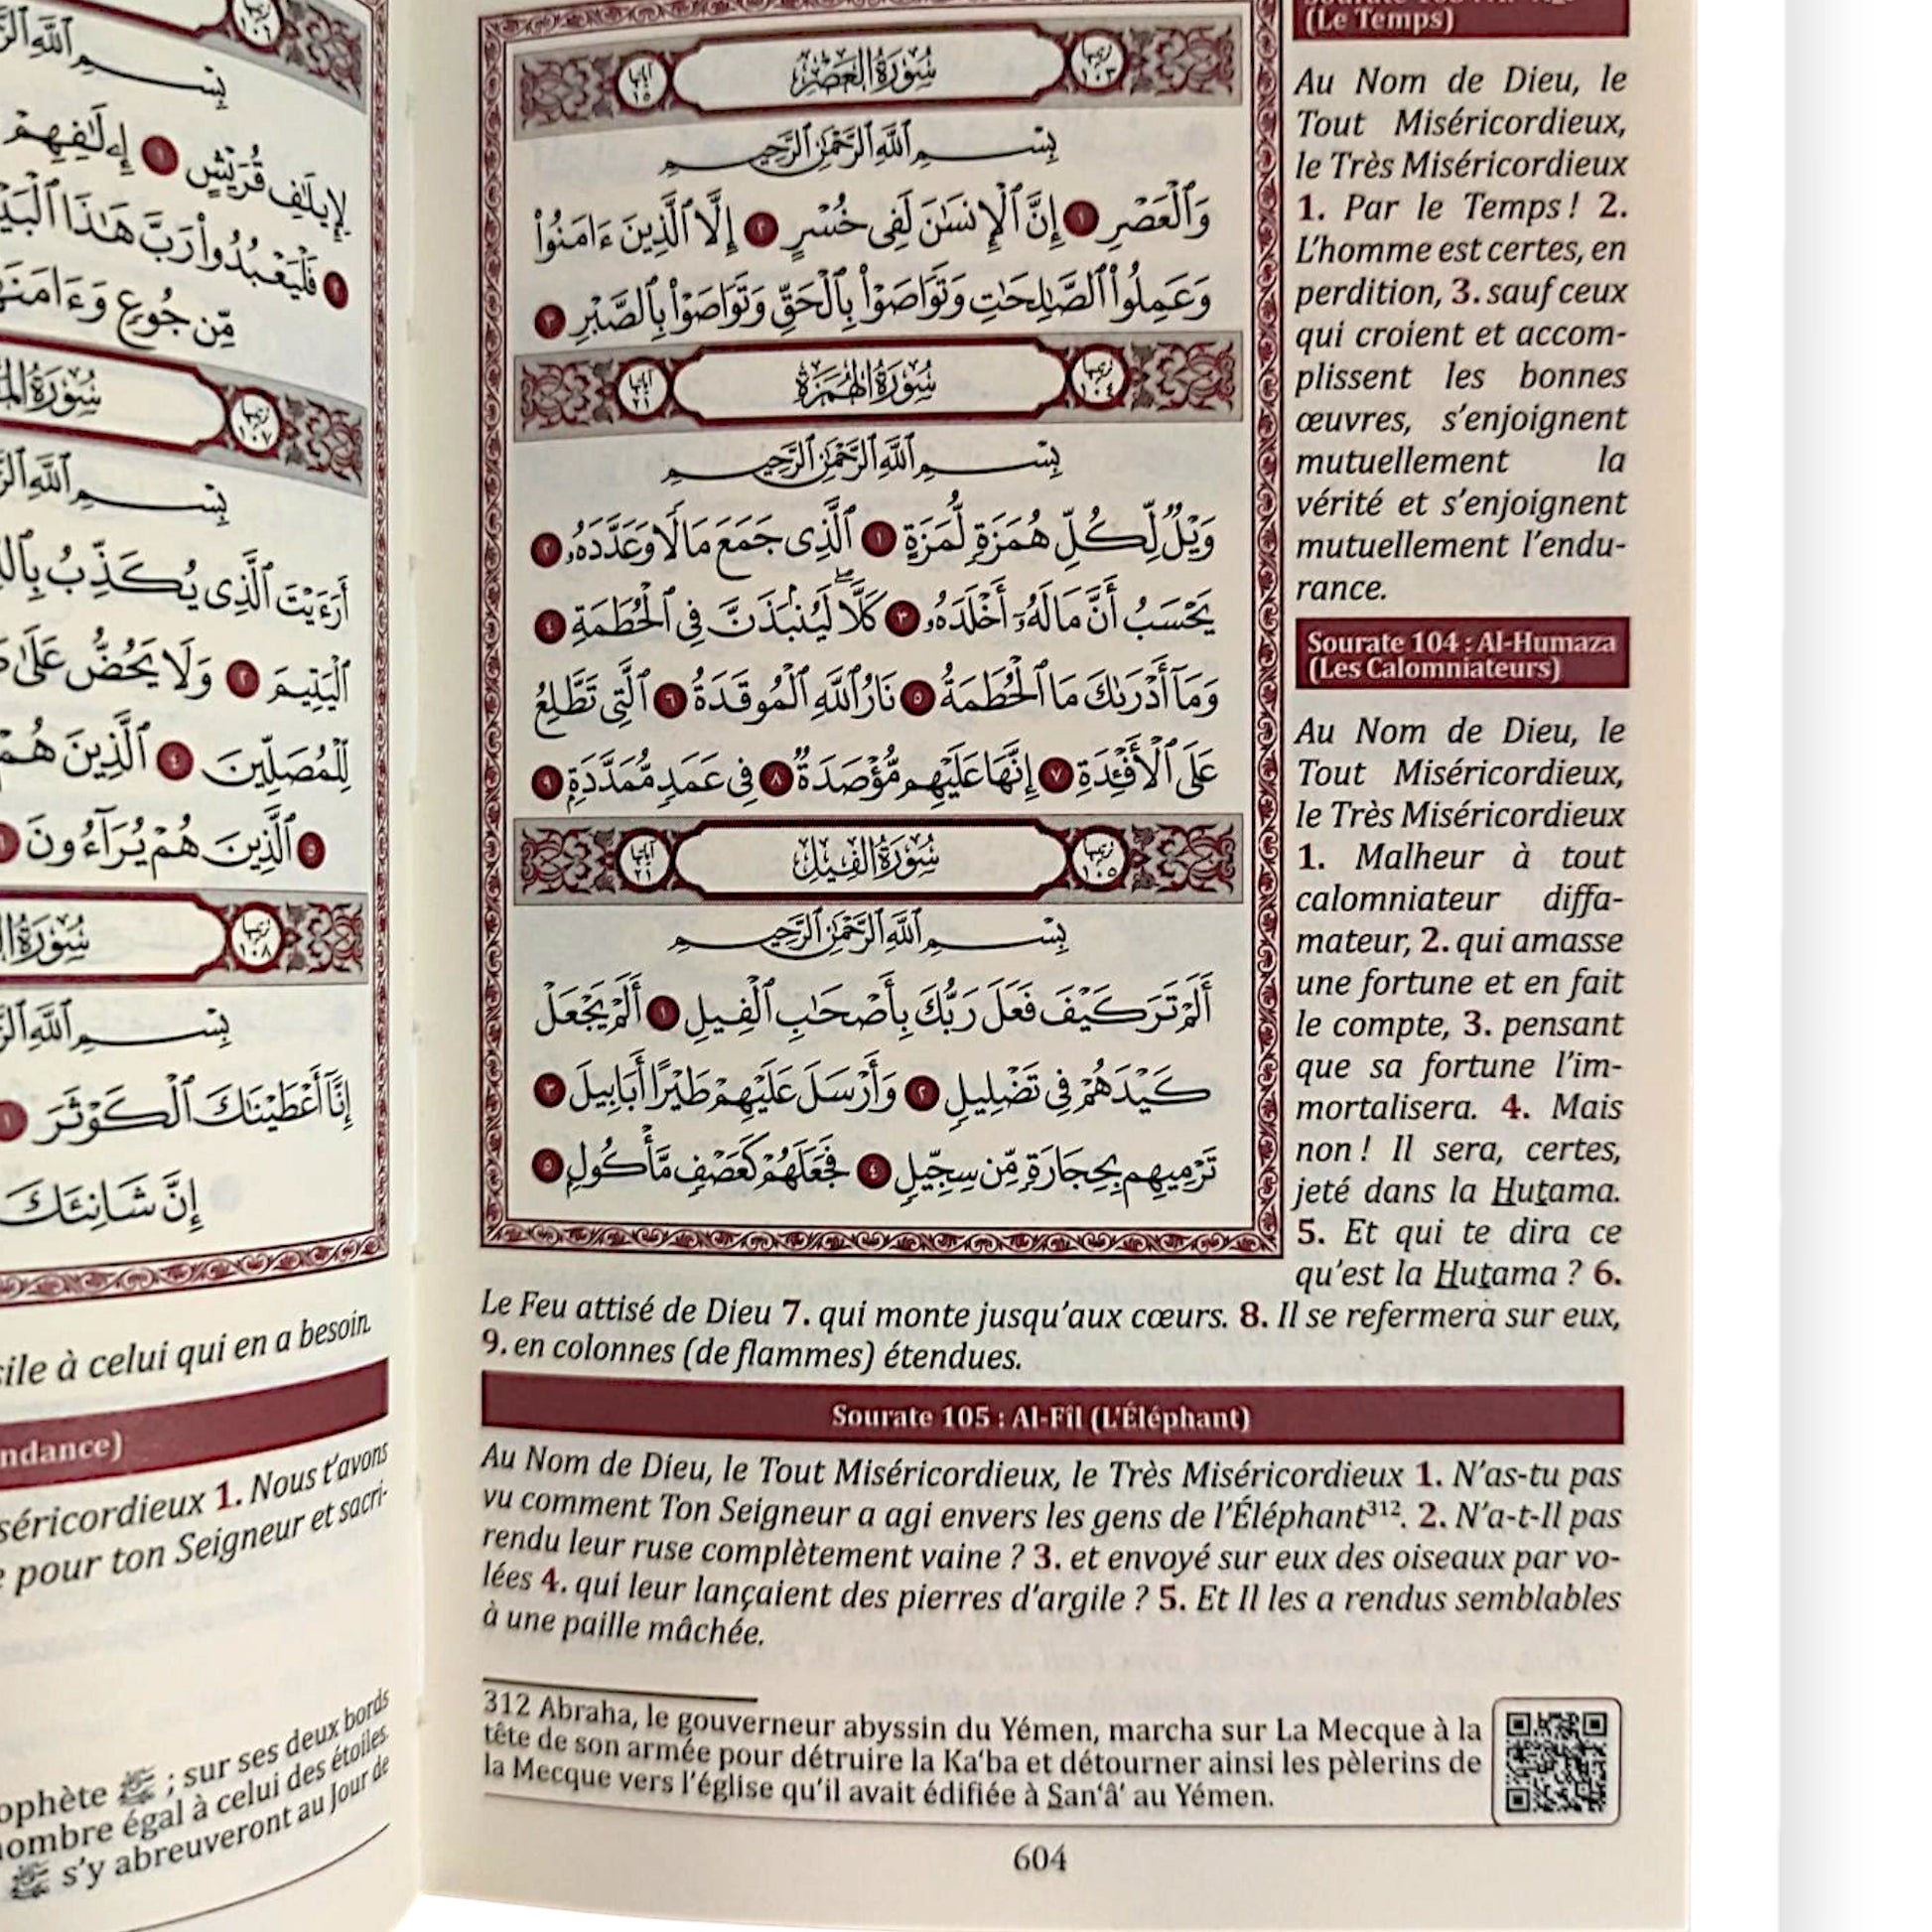 سُورَةُ العَصْرِ
بِسْمِ ٱللَّهِ ٱلرَّحْمَٰنِ ٱلرَّحِيمِ
وَٱلْعَصْرِ ١ إِنَّ ٱلْإِنسَٰنَ لَفِى خُسْرٍ ٢ إِلَّا ٱلَّذِينَ ءَامَنُوا۟
وَعَمِلُوا۟ ٱلصَّٰلِحَٰتِ وَتَوَاصَوْا۟ بِٱلْحَقِّ وَتَوَاصَوْا۟ بِٱلصَّبْرِ ٣
سُورَةُ الهُمَزَةِ
بِسْمِ ٱللَّهِ ٱلرَّحْمَٰنِ ٱلرَّحِيمِ
وَيْلٌ لِّكُلِّ هُمَزَةٍ لُّمَزَةٍ ١ ٱلَّذِى جَمَعَ مَالًا وَعَدَّدَهُۥ ٢
يَحْسَبُ أَنَّ مَالَهُۥٓ أَخْلَدَهُۥ ٣ كَلَّا ۖ لَيُنۢبَذَنَّ فِى ٱلْحُطَمَةِ ٤
وَمَآ أَدْرَىٰكَ مَا ٱلْحُطَمَةُ ٥ نَارُ ٱللَّهِ ٱلْمُوقَدَةُ ٦ ٱلَّتِى تَطَّلِعُ
عَلَى ٱلْأَفْـِٔدَةِ ٧ إِنَّهَا عَلَيْهِم مُّؤْصَدَةٌ ٨ فِى عَمَدٍ مُّمَدَّدَةٍۭ ٩
سُورَةُ الفِيلِ
بِسْمِ ٱللَّهِ ٱلرَّحْمَٰنِ ٱلرَّحِيمِ
أَلَمْ تَرَ كَيْفَ فَعَلَ رَبُّكَ بِأَصْحَٰبِ ٱلْفِيلِ ١ أَلَمْ يَجْعَلْ
كَيْدَهُمْ فِى تَضْلِيلٍ ٢ وَأَرْسَلَ عَلَيْهِمْ طَيْرًا أَبَابِيلَ ٣
تَرْمِيهِم بِحِجَارَةٍ مِّن سِجِّيلٍ ٤ فَجَعَلَهُمْ كَعَصْفٍ مَّأْكُولٍۭ ٥
(Le Temps)
Au Nom de Dieu, le
Tout Miséricordieux,
le Très Miséricordieux
1. Par le Temps ! 2.
L'homme est certes, en
perdition, 3. sauf ceux
qui croient et accom-
plissent les bonnes
œuvres, s'enjoignent
mutuellement la
vérité et s'enjoignent
mutuellement l'endu-
rance.
Sourate 104 : Al-Humaza
(Les Calomniateurs)
Au Nom de Dieu, le
Tout Miséricordieux,
le Très Miséricordieux
1. Malheur à tout
calomniateur diffa-
mateur, 2. qui amasse
une fortune et en fait
le compte, 3. pensant
que sa fortune l'im-
mortalisera. 4. Mais
non ! Il sera, certes,
jeté dans la Hutama.
5. Et qui te dira ce
qu'est la Hutama ? 6.
Le Feu attisé de Dieu 7. qui monte jusqu'aux cœurs. 8. Il se refermera sur eux,
9. en colonnes (de flammes) étendues.
Sourate 105 : Al-Fîl (L'Éléphant)
Au Nom de Dieu, le Tout Miséricordieux, le Très Miséricordieux 1. N'as-tu pas
vu comment Ton Seigneur a agi envers les gens de l'Éléphant³¹². 2. N'a-t-Il pas
rendu leur ruse complètement vaine ? 3. et envoyé sur eux des oiseaux par vo-
lées 4. qui leur lançaient des pierres d'argile ? 5. Et Il les a rendus semblables
à une paille mâchée.
312 Abraha, le gouverneur abyssin du Yémen, marcha sur La Mecque à la
tête de son armée pour détruire la Ka'ba et détourner ainsi les pèlerins de
la Mecque vers l'église qu'il avait édifiée à San'â' au Yémen.
604
بِسْمِ ٱللَّهِ
لِإِيلَٰفِ قُرَيْشٍ ١ إِۦلَٰفِهِمْ
٢ فَلْيَعْبُدُوا۟ رَبَّ هَٰذَا
مِّن جُوعٍ
سُورَةُ
بِسْمِ ٱللَّهِ
أَرَءَيْتَ ٱلَّذِى يُكَذِّبُ
ٱلْيَتِيمَ ٢ وَلَا يَحُضُّ عَلَىٰ
لِّلْمُصَلِّينَ ٤ ٱلَّذِينَ هُمْ
٥ ٱلَّذِينَ هُمْ يُرَآءُونَ
سُورَةُ
بِسْمِ ٱللَّهِ
إِنَّآ أَعْطَيْنَٰكَ ٱلْكَوْثَرَ ١
إِنَّ شَانِئَكَ
à celui qui en a besoin.
1. Nous t'avons
pour ton Seigneur et sacri-
; sur ses deux bords
égal à celui des étoiles.
s'y abreuveront au Jour de